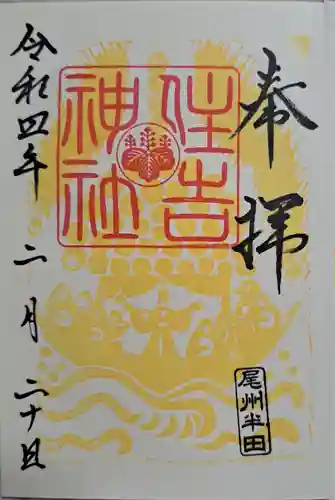 奉拝
住吉
神社
尾州半田
令和四年二月二十日